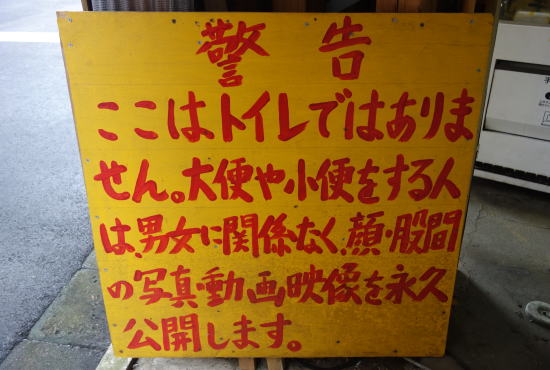 警告
ここはトイレではありま
せん。大便や小便をする人
は、男女に関係なく、顔・股間
の写真・動画映像を永久
公開します。